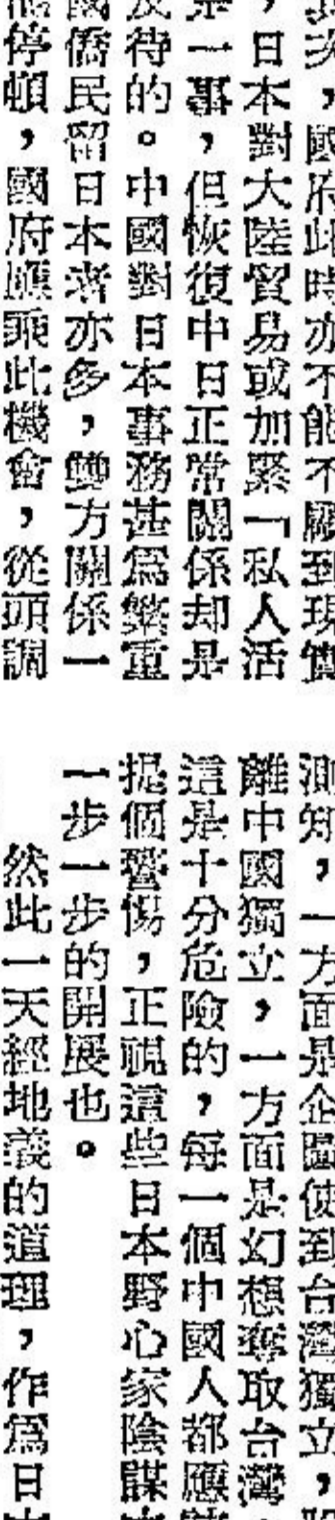 其次，國府此時亦不能不顧到現實
，日本對大陸貿易或加緊「私人活
是一事，但恢復中日正常關係却是
待的。中國對日本事務甚為繁重
國僑民留日本者亦多，雙方關係一
停頓，國府應乘此機會，從頭調
測知，一方面是企圖使到台灣獨立，
離中國獨立，一方面是幻想奪取台灣，
這是十分危險的，每一個中國人都應
提個警惕，正視這些日本野心家陰謀
一步一步的開展也。
然此一天經地義的道理，作為日